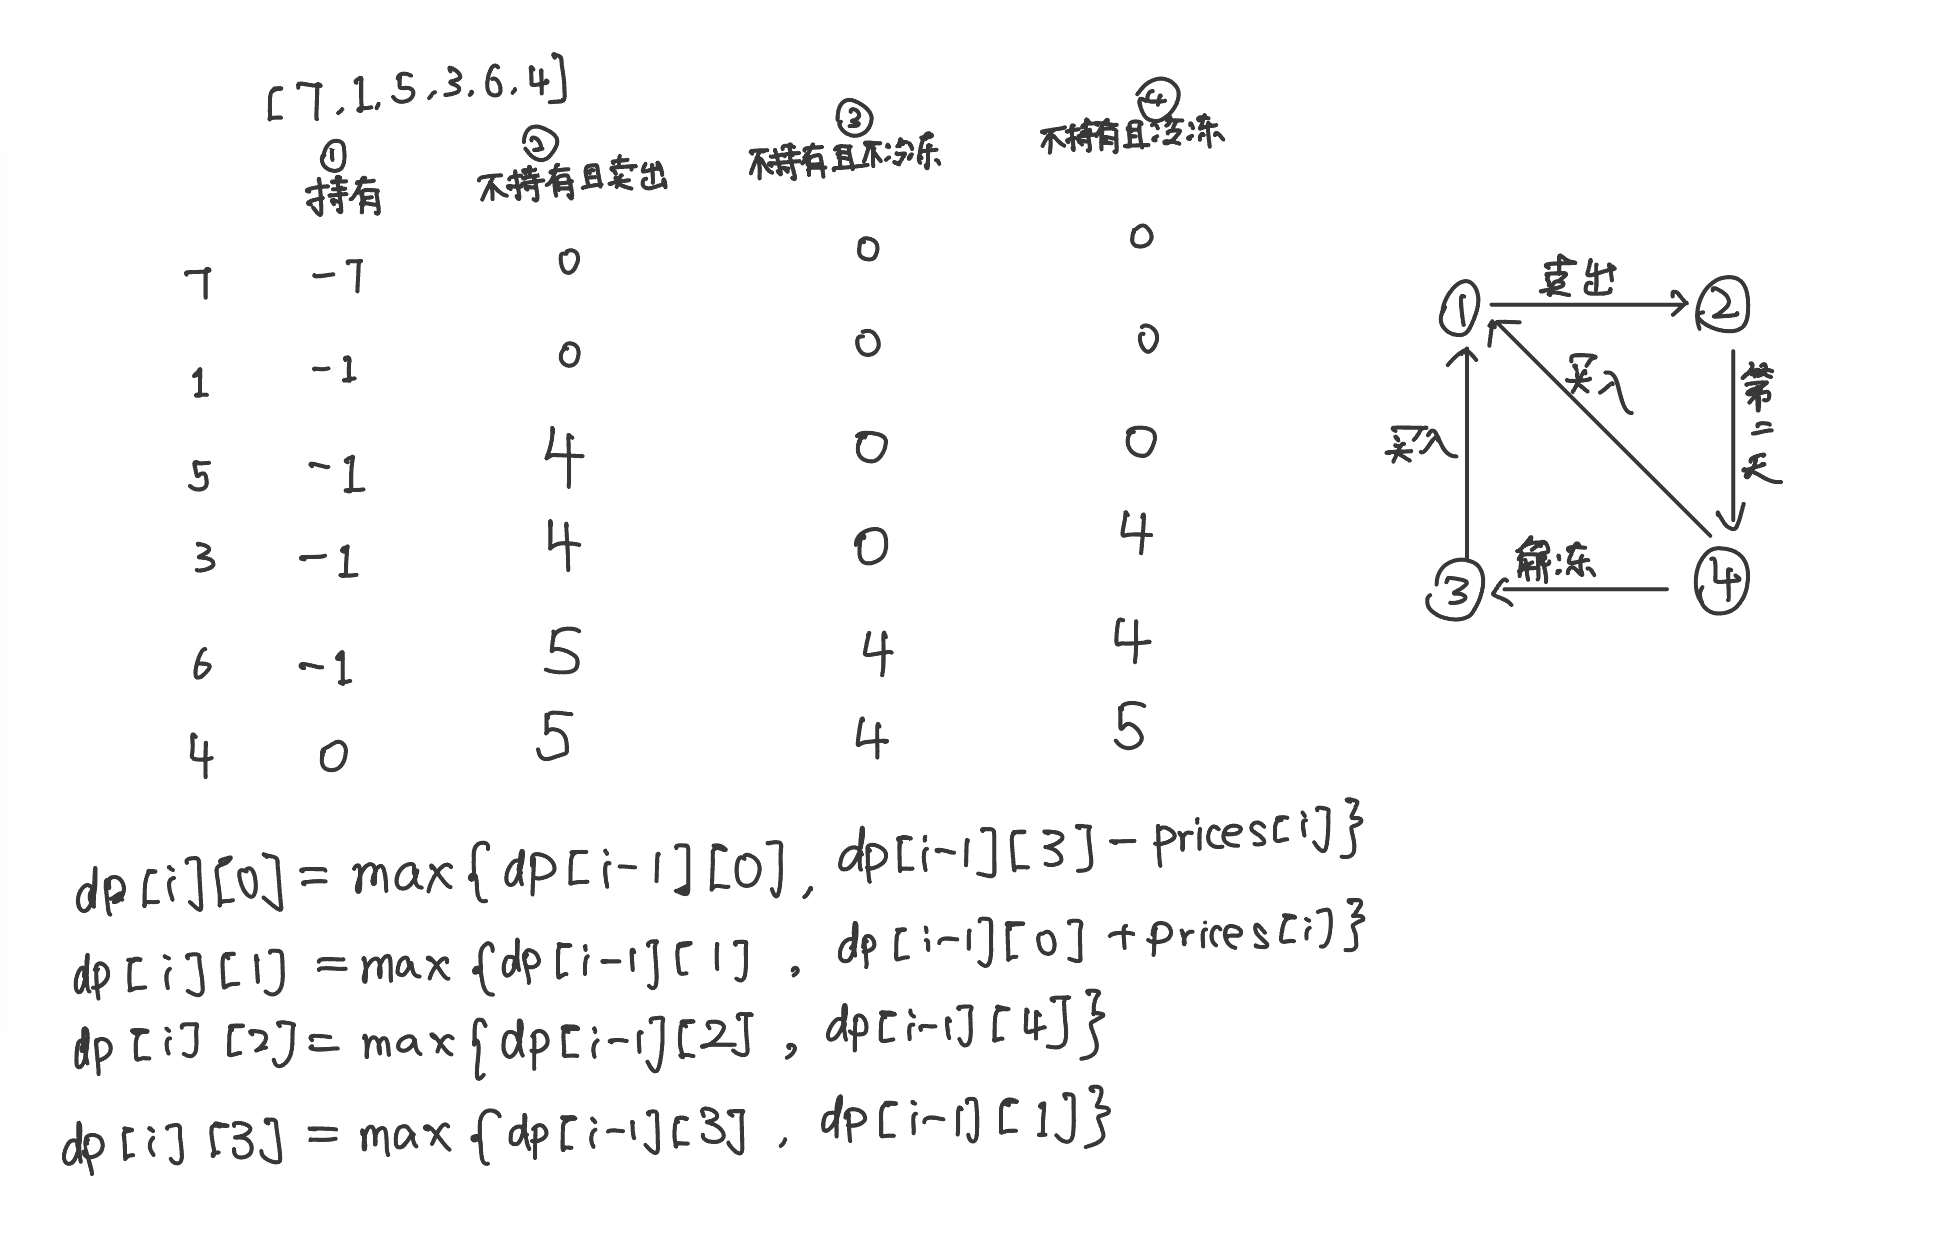 [7,1,5,3,6,4]
① ② ③ ④
持有 不持有且卖出 不持有且不冷冻 不持有且冷冻
7 -7 0 0 0
1 -1 0 0 0
5 -1 4 0 0
3 -1 4 0 4
6 -1 5 4 4
4 0 5 4 5
① 卖出 ②
买入
买入
第二天
③ 解冻 ④
dp[i][0] = max{dp[i-1][0], dp[i-1][3]-prices[i]}
dp[i][1] = max{dp[i-1][1], dp[i-1][0]+prices[i]}
dp[i][2] = max{dp[i-1][2], dp[i-1][4]}
dp[i][3] = max{dp[i-1][3], dp[i-1][1]}